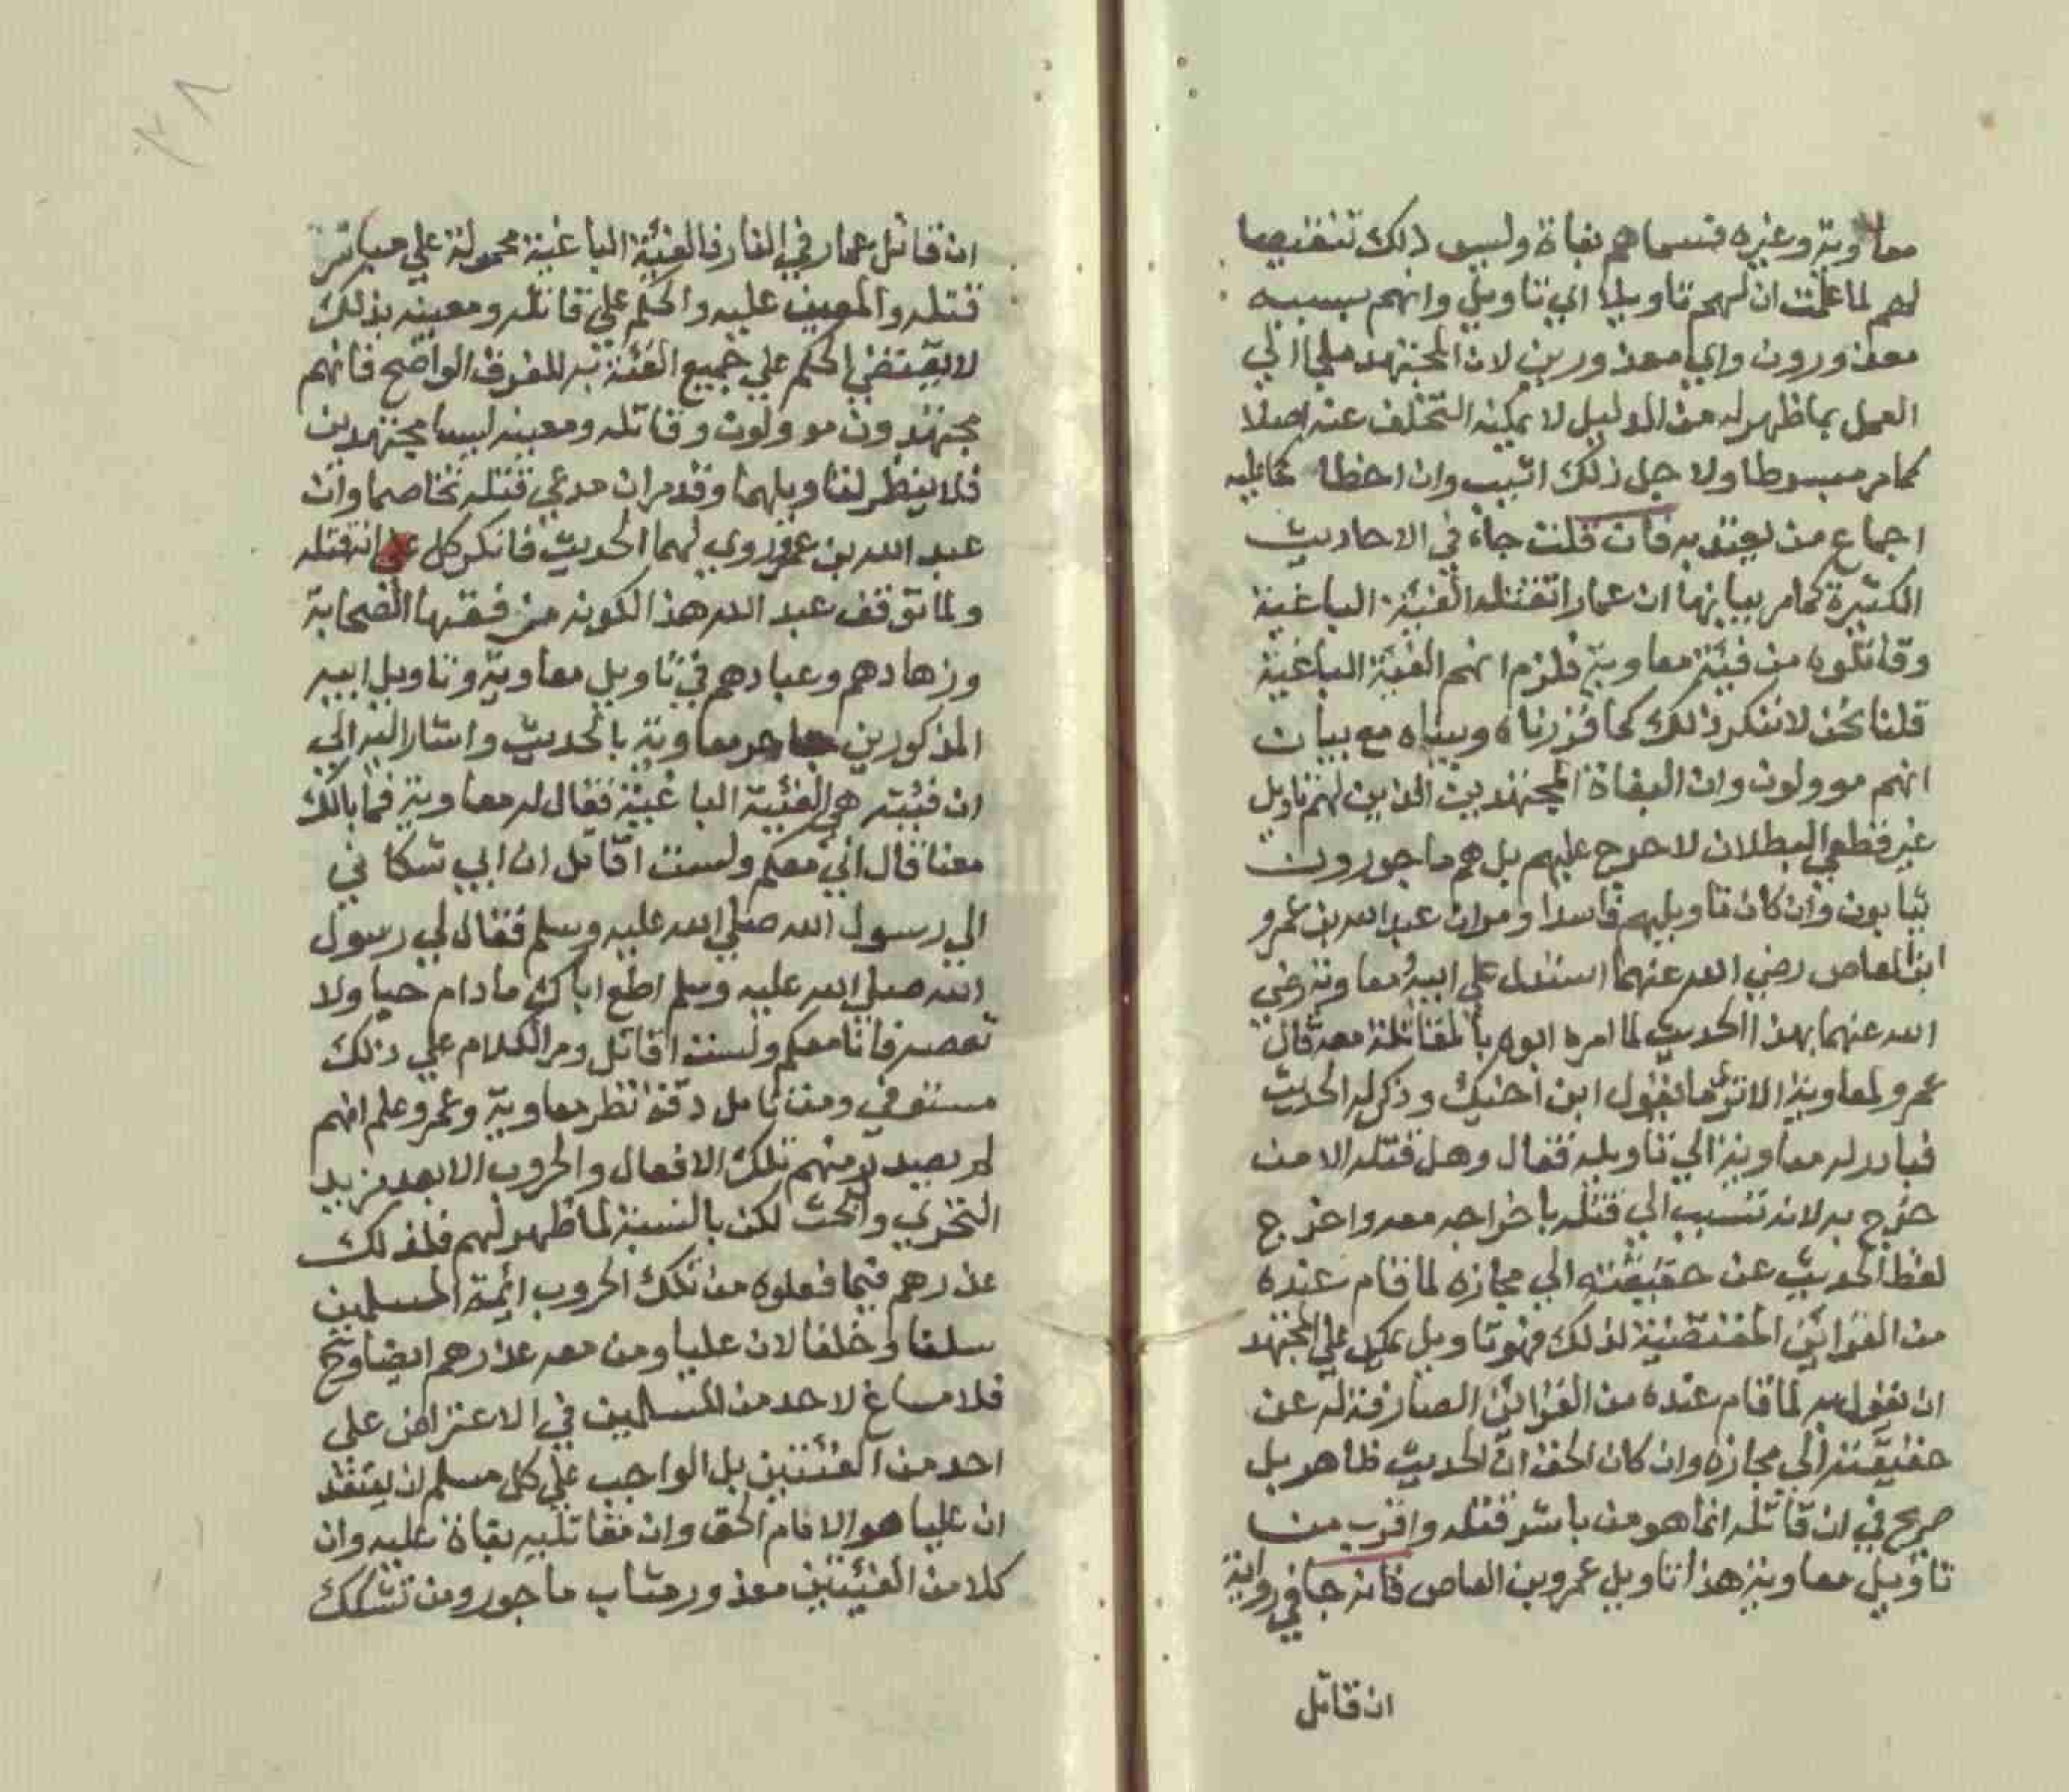 معاوية وغيره فسماهم بغاة وليس ذلك تنقيصا
لهم لما علمت ان لهم تاويلا اي تاويل وانهم بسببه
معذورون واي معذورين لان المجتهد ملجاا لي
العمل بما ظهر له من الدليل لا يمكنه التخلف عنه اصلا
كما مر مبسوطا ولا جل ذلك اثيب وان اخطا كما عليه
اجماع من يعتد به فان قلت جاء في الاحاديث
الكثيرة كما مر بيانها ان عمارا تقتله الفيئة الباغية
وقاتلوه من فيئة معاوية فلزم انهم الفيئة الباغية
قلنا نحن لا ننكر ذلك كما قررناه وبيناه مع بيان
انهم موولون وان البغاة المجتهدين الذين لهم تاويل
غير قطعي البطلان لا حرج عليهم بل هم ماجورون
يثابون وان كان تاويلهم فاسدا ومر ان عبد الله بن عمرو
ابن العاص رضي الله عنهما استدل علي ابيه ومعاوية رضي
الله عنهما بهذا الحديث لما امره ابوه بالمقاتلة معه قال
عمرو لمعاوية الا تري ما يقول ابن اخيك وذكر له الحديث
فبادر له معاوية الي تاويله فقال وهل قتله الا من
خرج به لانه تسبب الي قتله باخراجه معه واخرج
لفظ الحديث عن حقيقته الي مجازه لما قام عنده
من القرائن المقتضية لذلك فهو تاويل يمكن علي المجتهد
ان يقول به لما قام عنده من القرائن الصارفة له عن
حقيقته الي مجازه وان كان الحق ان الحديث ظاهر بل
صريح في ان قاتله انما هو من باشر قتله واقرب من
تاويل معاوية هذا تاويل عمرو بن العاص فانه جا في رواية
ان قاتل
٣٨
ان قاتل عمار في النار فالفيئة الباغية محمولة علي مباشر
قتله والمعين عليه والحكم علي قاتله ومعينه بذلك
لا يقتضي الحكم علي جميع الفئة به للفرق الواضح فانهم
مجتهدون موولون وقاتله ومعينه ليسا مجتهدين
فلا ينظر لتاويلهما وقد مر ان مدعي قتله تخاصما وان
عبد الله بن عمرو روي لهما الحديث فانكر كل علي انه قتله
ولما توقف عبد الله هذا لكونه من فقها الصحابة
وزهادهم وعبادهم في تاويل معاوية وتاويل ابيه
المذكورين جاهر معاوية بالحديث واشار اليه الي
ان فيئته هي الفئية الباغية فقال له معاوية فما بالك
معنا قال اني معكم ولست اقاتل ان ابي شكاني
الي رسول الله صلي الله عليه وسلم فقال لي رسول
الله صلي الله عليه وسلم اطع اباك ما دام حيا ولا
تعصه فانا معكم ولست اقاتل ومر الكلام علي ذلك
مستوفي ومن تامل دقة نظر معاوية وعمرو علم انهم
لم يصدر منهم تلك الافعال والحروب الا بعد مزيد
التحري والبحث لكن بالنسبة لما ظهر لهم فلذلك
عذرهم فيما فعلوه من تلك الحروب ائمة المسلمين
سلفا وخلفا لان عليا ومن معه عذرهم ايضا وح
فلا مساغ لاحد من المسلمين في الاعتراض علي
احد من الفئتين بل الواجب علي كل مسلم ان يعتقد
ان عليا هو الامام الحق وان مقاتليه بغاة عليه وان
كلا من الفيئتين معذور مثاب ماجور ومن تشكك